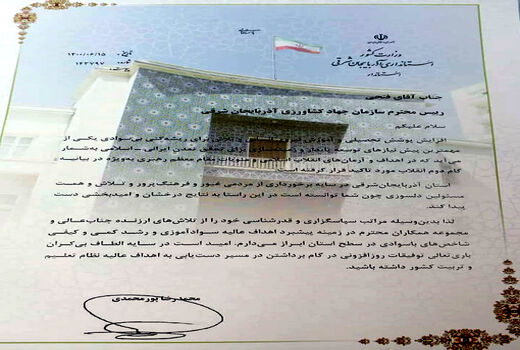 وزارت کشور
استانداری آذربایجان شرقی
استاندار
تاریخ: ۱۴۰۰/۰۶/۱۵
شماره: ۱۴۳۷۹۷
جناب آقای فتحی
رییس محترم سازمان جهاد کشاورزی آذربایجان شرقی
سلام علیکم
افزایش پوشش تحصیلی ریشه‌کنی بی‌سوادی یکی از
مهمترین پیش نیاز توسعه تمدن ایرانی - اسلامی به‌شمار
می آید که در اهداف و آرمان‌های انقلاب مقام معظم رهبری به‌ویژه در بیانیه
گام دوم انقلاب مورد تاکید قرار گرفته است.
استان آذربایجان‌شرقی در سایه برخورداری از مردمی غیور و فرهنگ‌پرور و تلاش و همت
مسئولین دلسوزی چون شما توانسته است در این راستا به نتایج درخشان و امیدبخشی دست
پیدا کند.
لذا بدین‌وسیله مراتب سپاسگزاری و قدرشناسی خود را از تلاش‌های ارزنده جناب‌عالی و
مجموعه همکاران محترم در زمینه پیشبرد اهداف عالیه سوادآموزی و رشد کمی و کیفی
شاخص‌های باسوادی در سطح استان ابراز می‌دارم. امید است در سایه الطاف بی‌کران
باری‌تعالی توفیقات روزافزونی در گام برداشتن در مسیر دست‌یابی به اهداف عالیه نظام تعلیم
و تربیت کشور داشته باشید.
محمدرضا پورمحمدی